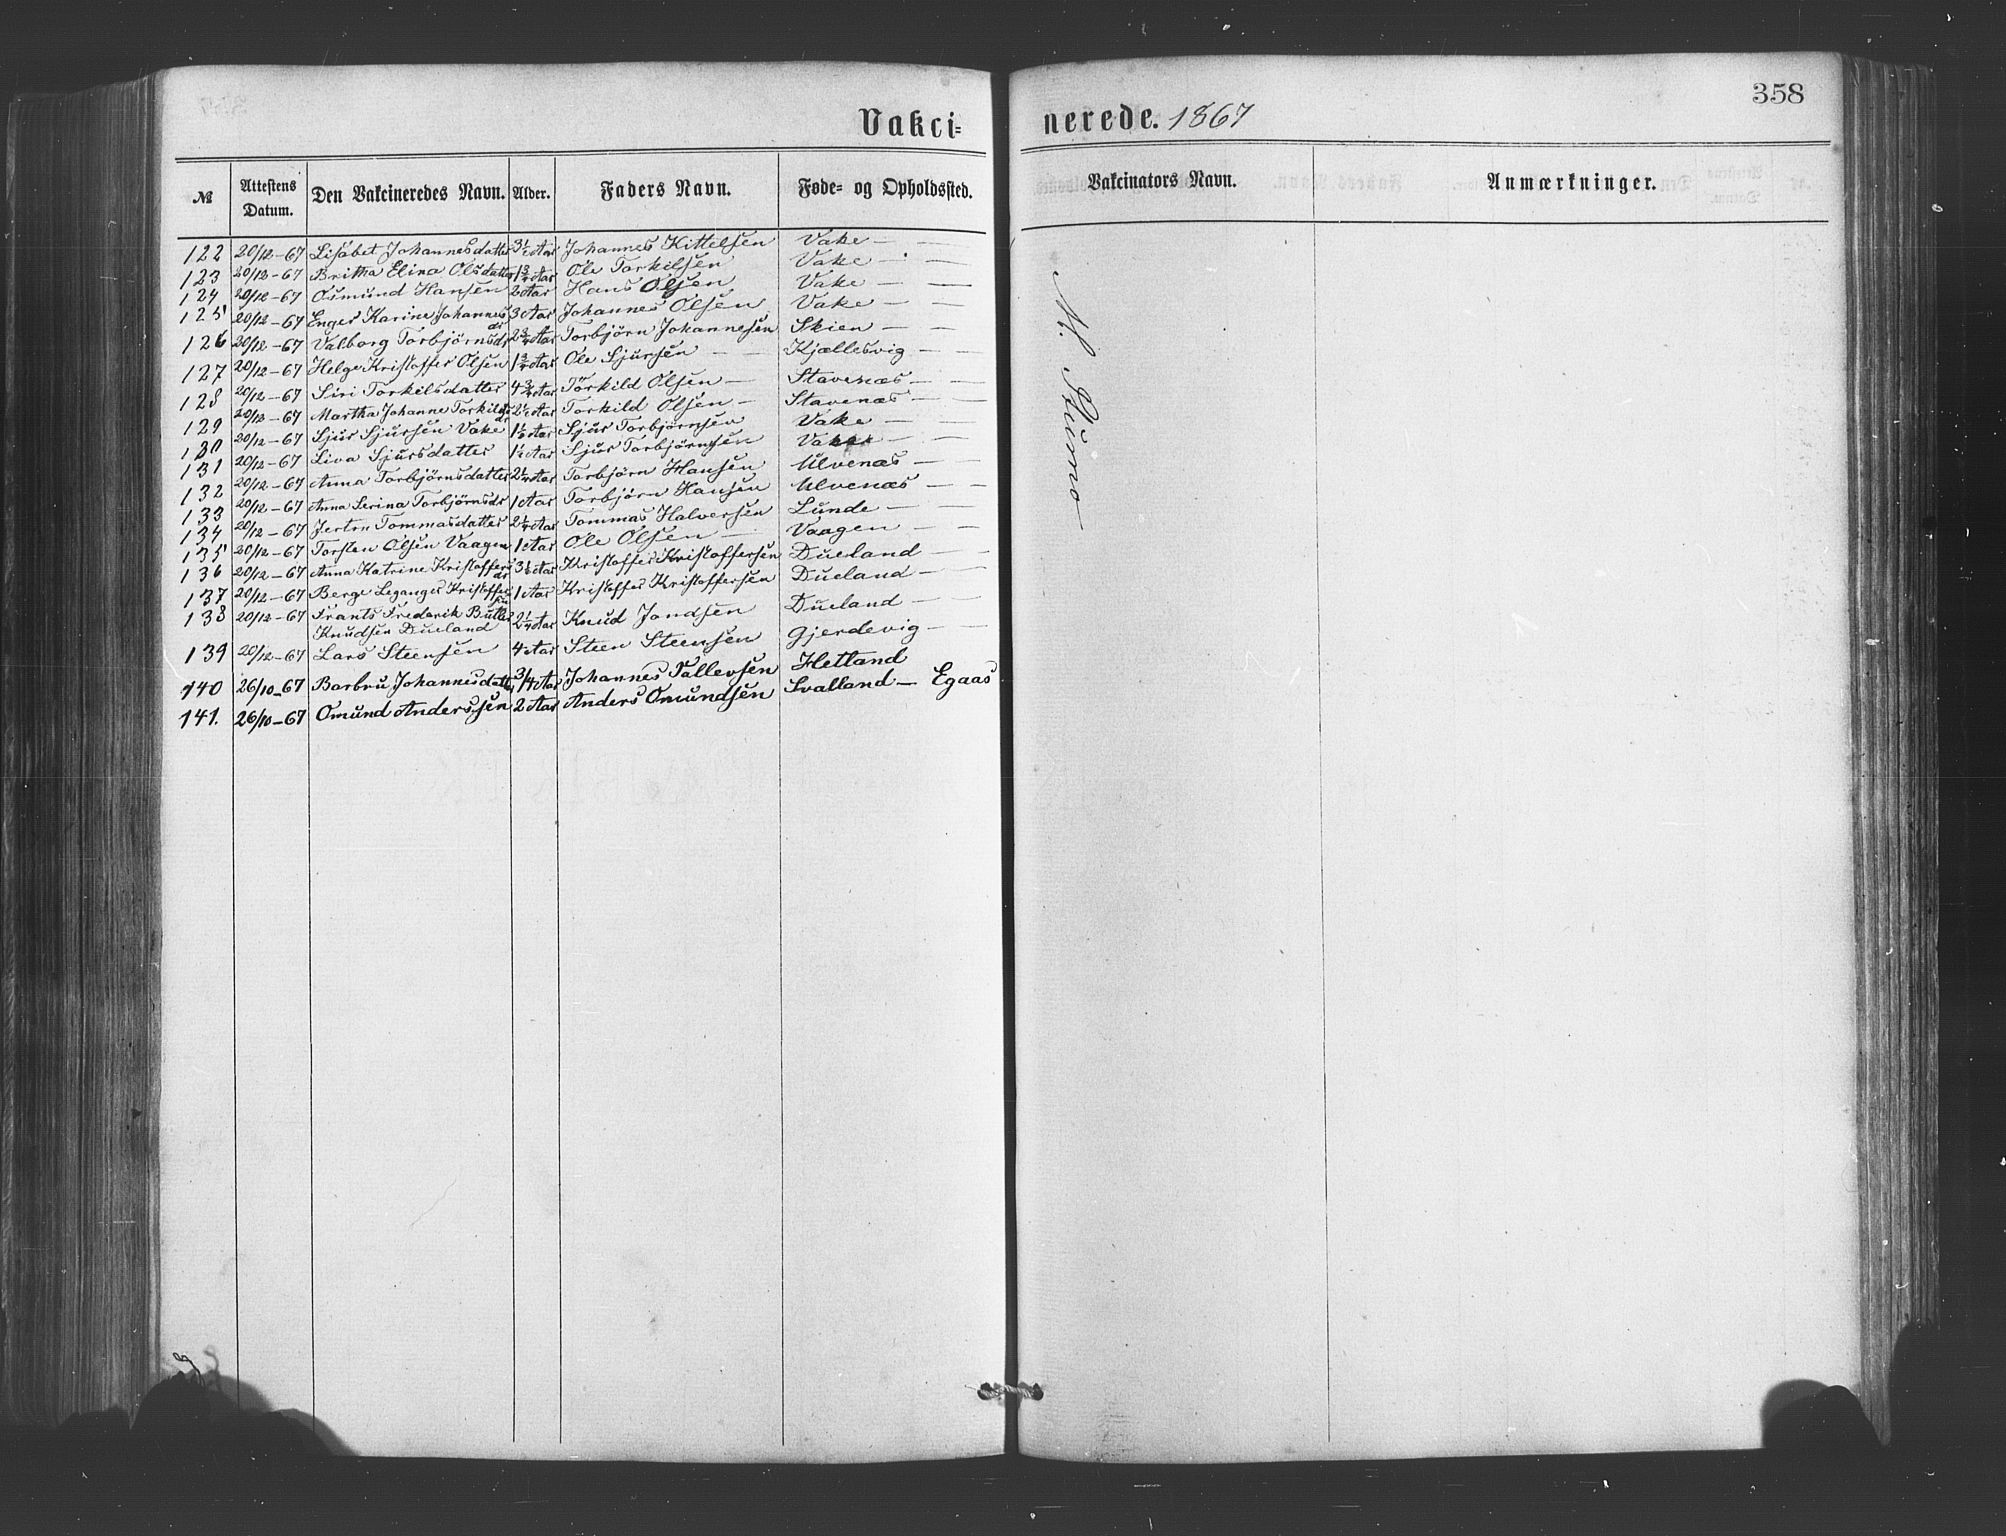 358
Vakci=nerede. 1867
№ Attestens Datum. Den Vakcineredes Navn. Alder. Faders Navn. Føde= og Opholdssted. Vakcinators Navn. Anmærkninger.
122 20/12-67 Lisabet Johannesdatter 3½ Aar Johannes Kittelsen Vake — —
123 20/12-67 Britha Elina Olsdatter 1¾ Aar Ole Torkilsen Vake — —
124 20/12-67 Osmund Hansen 2 Aar Hans Olsen Vake — —
125 20/12-67 Enger Karine Johannesdr 3 Aar Johannes Olsen Vake — —
126 20/12-67 Valborg Torbjörnsdr 2¾ Aar Torbjörn Johannesen Skien — —
127 20/12-67 Helge Kristoffer Olsen 1¾ Aar Ole Sjursen — — Kjællesvig — —
128 20/12-67 Siri Torkilsdatter 4¾ Aar Torkild Olsen — Stavenæs — —
20/12-67 Martha Johanne Torkildsdr 2½ Aar Torkild Olsen — Stavenæs — —
129 20/12-67 Sjur Sjursen Vake 1½ Aar Sjur Torbjörnsen Vake — —
130 20/12-67 Liva Sjursdatter 1½ Aar Sjur Torbjörnsen Vake — —
131 20/12-67 Anna Torbjörnsdatter 2¼ Aar Torbjörn Hansen Ulvenæs — —
132 20/12-67 Anna Serina Torbjörnsdr 1 Aar Torbjörn Hansen Ulvenæs — —
133 20/12-67 Jertru Tommasdatter 2¼ Aar Tommas Halversen Lunde — —
134 20/12-67 Torsten Olsen Vaagen 1 Aar Ole Olsen — Vaagen — —
135 20/12-67 Anna Katrine Kristoffersdr 3½ Aar Kristoffer Kristoffersen Dueland — —
136 20/12-67 Berge Leganger Kristoffersen 1 Aar Kristoffer Kristoffersen Dueland — —
137
138 20/12-67 Frants Frederik Butler Knudsen Dueland 2¼ Aar Knud Jondsen Dueland — —
139 20/12-67 Lars Steensen 4 Aar Steen Steensen Gjerdevig — —
140 26/10-67 Barbru Johannesdatter 3/4 Aar Johannes Tallevsen Hetland
141. 26/10-67 Omund Anderssen 2 Aar Anders Omundsen Svalland — Egaas
M.